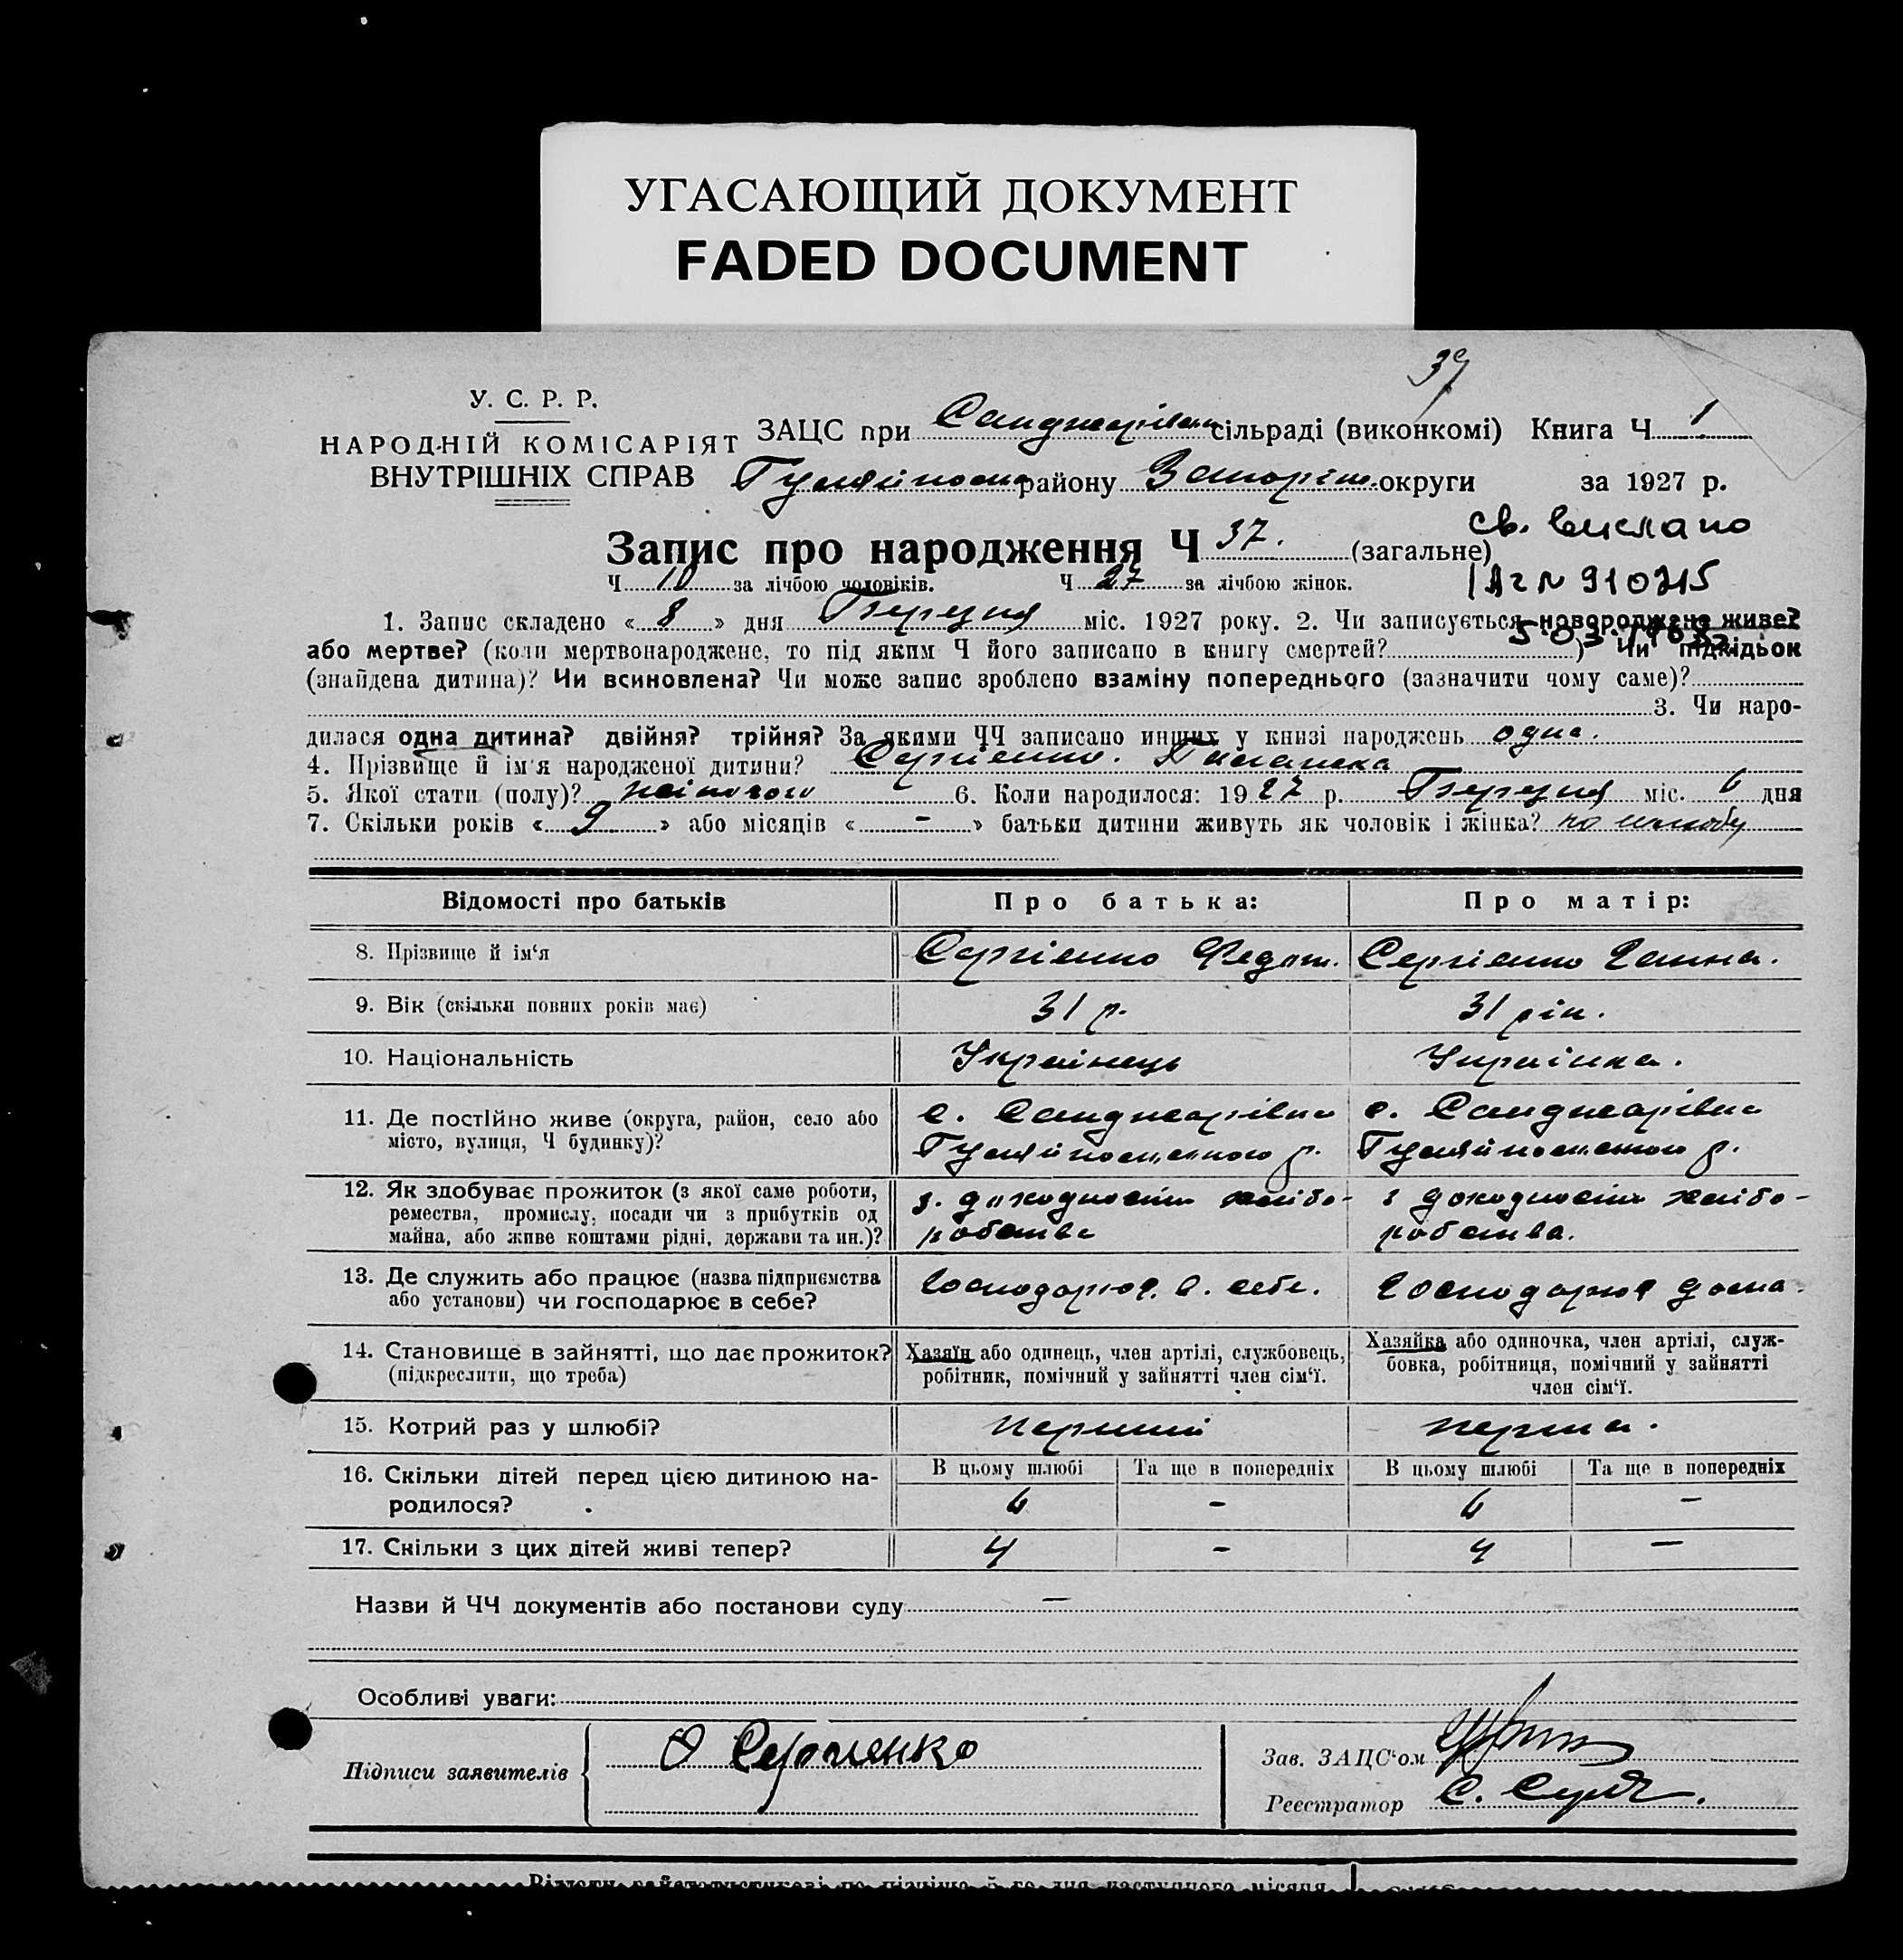 УГАСАЮЩИЙ ДОКУМЕНТ
FADED DOCUMENT
У. С. Р. Р.
НАРОДНІЙ КОМІСАРІЯТ
ВНУТРІШНІХ СПРАВ
ЗАЦС при Санджарівськ сільраді (виконкомі) Книга Ч 1
району Запоріж. округи за 1927 р.
Запис про народження Ч 37. (загальне)
св. вислано
ІАГ № 910215
Ч 10 за лічбою чоловіків. Ч 27 за лічбою жінок.
1. Запис складено « 8 » дня Березня міс. 1927 року. 2. Чи записується новороджене живе?
або мертве? (коли мертвонароджене, то під яким Ч його записано в книгу смертей? ) Чи підкідьок
(знайдена дитина)? Чи всиновлена? Чи може запис зроблено взаміну попереднього (зазначити чому саме)?
3. Чи наро-
дилася одна дитина? двійня? трійня? За якими ЧЧ записано инших у книзі народжень одна.
4. Прізвище й ім'я народженої дитини? Сергієнко.
5. Якої стати (полу)? жіночого 6. Коли народилося: 1927 р. Березня міс. 6 дня
7. Скільки років « 9 » або місяців « - » батьки дитини живуть як чоловік і жінка? по шлюбу
Відомості про батьків Про батька: Про матір:
8. Прізвище й ім'я Сергієнко Федот. Сергієнко Ганна.
9. Вік (скільки повних років має) 31 р. 31 рік.
10. Національність Українець Українка.
11. Де постійно живе (округа, район, село або с. Санджарівка с. Санджарівка
місто, вулиця, Ч будинку)? Гуляйпольського р. Гуляйпольського р.
12. Як здобуває прожиток (з якої саме роботи, з. доходности хлібо- з доходности хлібо-
ремества, промислу, посади чи з прибутків од
майна, або живе коштами рідні, держави та ин.)? робства робства.
13. Де служить або працює (назва підприємства
або установи) чи господарює в себе? Господарює. в. себе. Господарює дома.
14. Становище в зайнятті, що дає прожиток? Хазяїн або одинець, член артілі, службовець, Хазяйка або одиночка, член артілі, служ-
(підкреслити, що треба) робітник, помічний у зайнятті член сім'ї. бовка, робітниця, помічний у зайнятті
член сім'ї.
15. Котрий раз у шлюбі? перший перша.
16. Скільки дітей перед цією дитиною на- В цьому шлюбі Та ще в попередніх В цьому шлюбі Та ще в попередніх
родилося? 6 - 6 -
17. Скільки з цих дітей живі тепер? 4 - 4 -
Назви й ЧЧ документів або постанови суду -
Особливі уваги:
Підписи заявителів Сергиенко
Зав. ЗАЦС'ом
Реєстратор С.